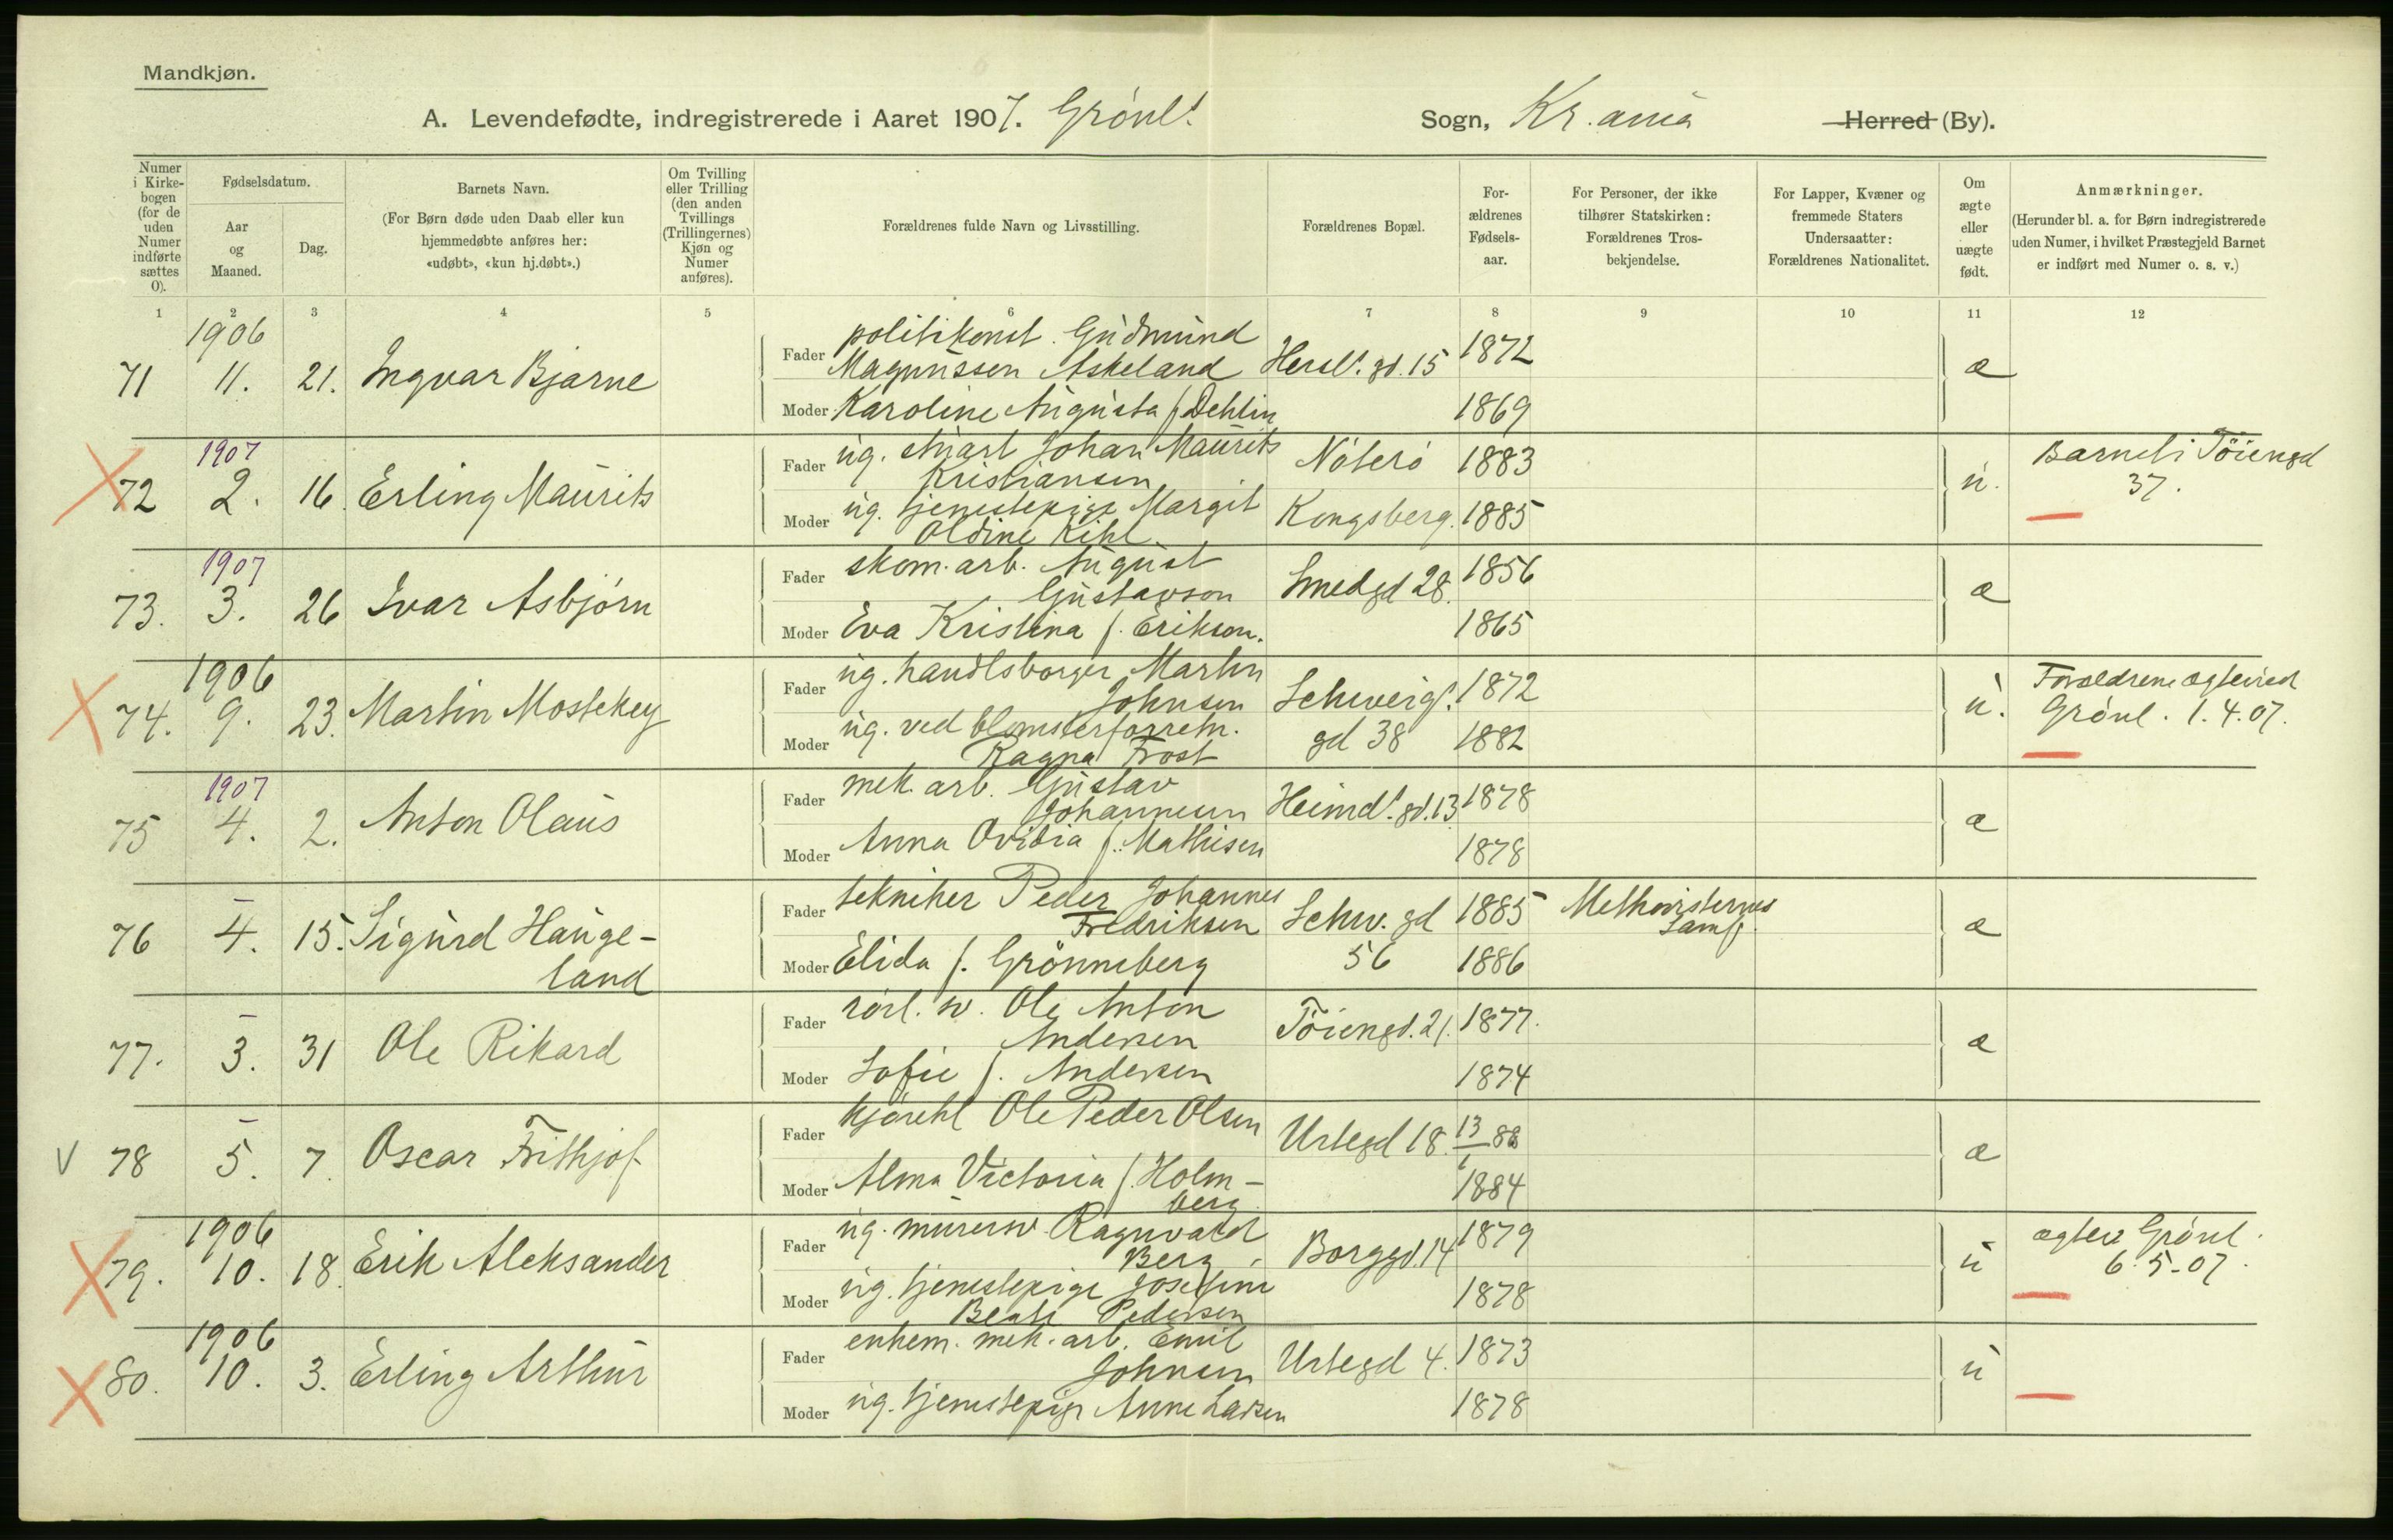 Mandkjøn.
A. Levendefødte, indregistrerede i Aaret 1907. Grønl. Sogn, Kr.ania Herred (By).
Numer i Kirkebogen (for de uden Numer indførte sættes 0).
Fødselsdatum.
Aar og Maaned.
Dag.
Barnets Navn.
(For Børn døde uden Daab eller kun hjemmedøbte anføres her: «udøbt», «kun hj.døbt».)
Om Tvilling eller Trilling (den anden Tvillings (Trillingernes) Kjøn og Numer anføres).
Forældrenes fulde Navn og Livsstilling.
Forældrenes Bopæl.
Forældrenes Fødselsaar.
For Personer, der ikke tilhører Statskirken: Forældrenes Trosbekjendelse.
For Lapper, Kvæner og fremmede Staters Undersaatter: Forældrenes Nationalitet.
Om ægte eller uægte født.
Anmærkninger.
(Herunder bl. a. for Børn indregistrerede uden Numer, i hvilket Præstegjeld Barnet er indført med Numer o. s. v.)
1 2 3 4 5 6 7 8 9 10 11 12
71 1906 11. 21. Ingvar Bjarne
Fader politikonst. Gudmund Magnussen Askeland Hersl. gd. 15 1872 æ
Moder Karoline Augusta f. Dehlin 1869
72 1907 2. 16. Erling Maurits
Fader ug. Johan Maurits Kristiansen Nøterø 1883 u. Barnet i Töiengd 37.
Moder ug. tjenestepige Margit Oldine Kihl Kongsberg. 1885
73. 1907 3. 26 Ivar Asbjørn
Fader skom. arb. August Gustavson Smedgd 28. 1856 æ
Moder Eva Kristina f. Erikson. 1865
74. 1906 9. 23. Martin Mostekey
Fader ug. handlsborger Martin Johnsen Schweig. gd 38 1872 u. Forældrene ægteviet Grønl. 1.4.07.
Moder ug. ved blomsterforretn. Ragna Frost 1882
75 1907 4. 2. Anton Olaus
Fader mek. arb. Gustav Johannesen Heimd. gd. 13 1878 æ
Moder Anna Ovidia f. Mathisen 1878
76 – 4. 15. Sigurd Haugeland
Fader tekniker Peder Johannes Fredriksen Schw. gd 56 1885 Methodisternes samf. æ
Moder Elida f. Grönneberg 1886
77. – 3. 31 Ole Rikard
Fader rörl. sv. Ole Anton Andersen Töiengd. 21. 1877. æ
Moder Sofie f. Andersen 1874
V 78 – 5. 7. Oscar Frithjof
Fader Ole Peder Olsen Urtegd 18. 13/1 88 æ
Moder Alma Victoria f. Holmberg 1884
79. 1906 10. 18. Erik Aleksander
Fader ug. murersv. Ragnvald Berg Borggd. 14 1879 u ægtev. Grönl. 6.5-07.
Moder ug. tjenestepige Josefine Beate Pedersen 1878
80. 1906 10. 3. Erling Arthur
Fader enkem. mek. arb. Emil Johnsen Urtegd 4. 1873 u
Moder ug. tjenestepige Anne Larsen 1878